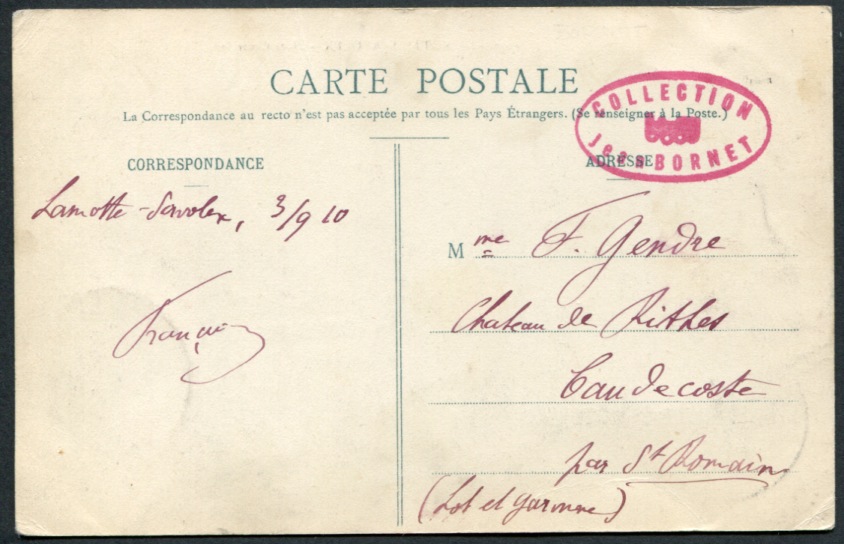 CARTE POSTALE
La Correspondance au recto n'est pas acceptée par tous les Pays Étrangers. (Se renseigner à la Poste.)
COLLECTION
Jean BORNET
CORRESPONDANCE
ADRESSE
Lamotte-Servolex, 3/9 10
M me F. Gendre
Chateau de
Caudecoste
par St Romain
(Lot et Garonne)